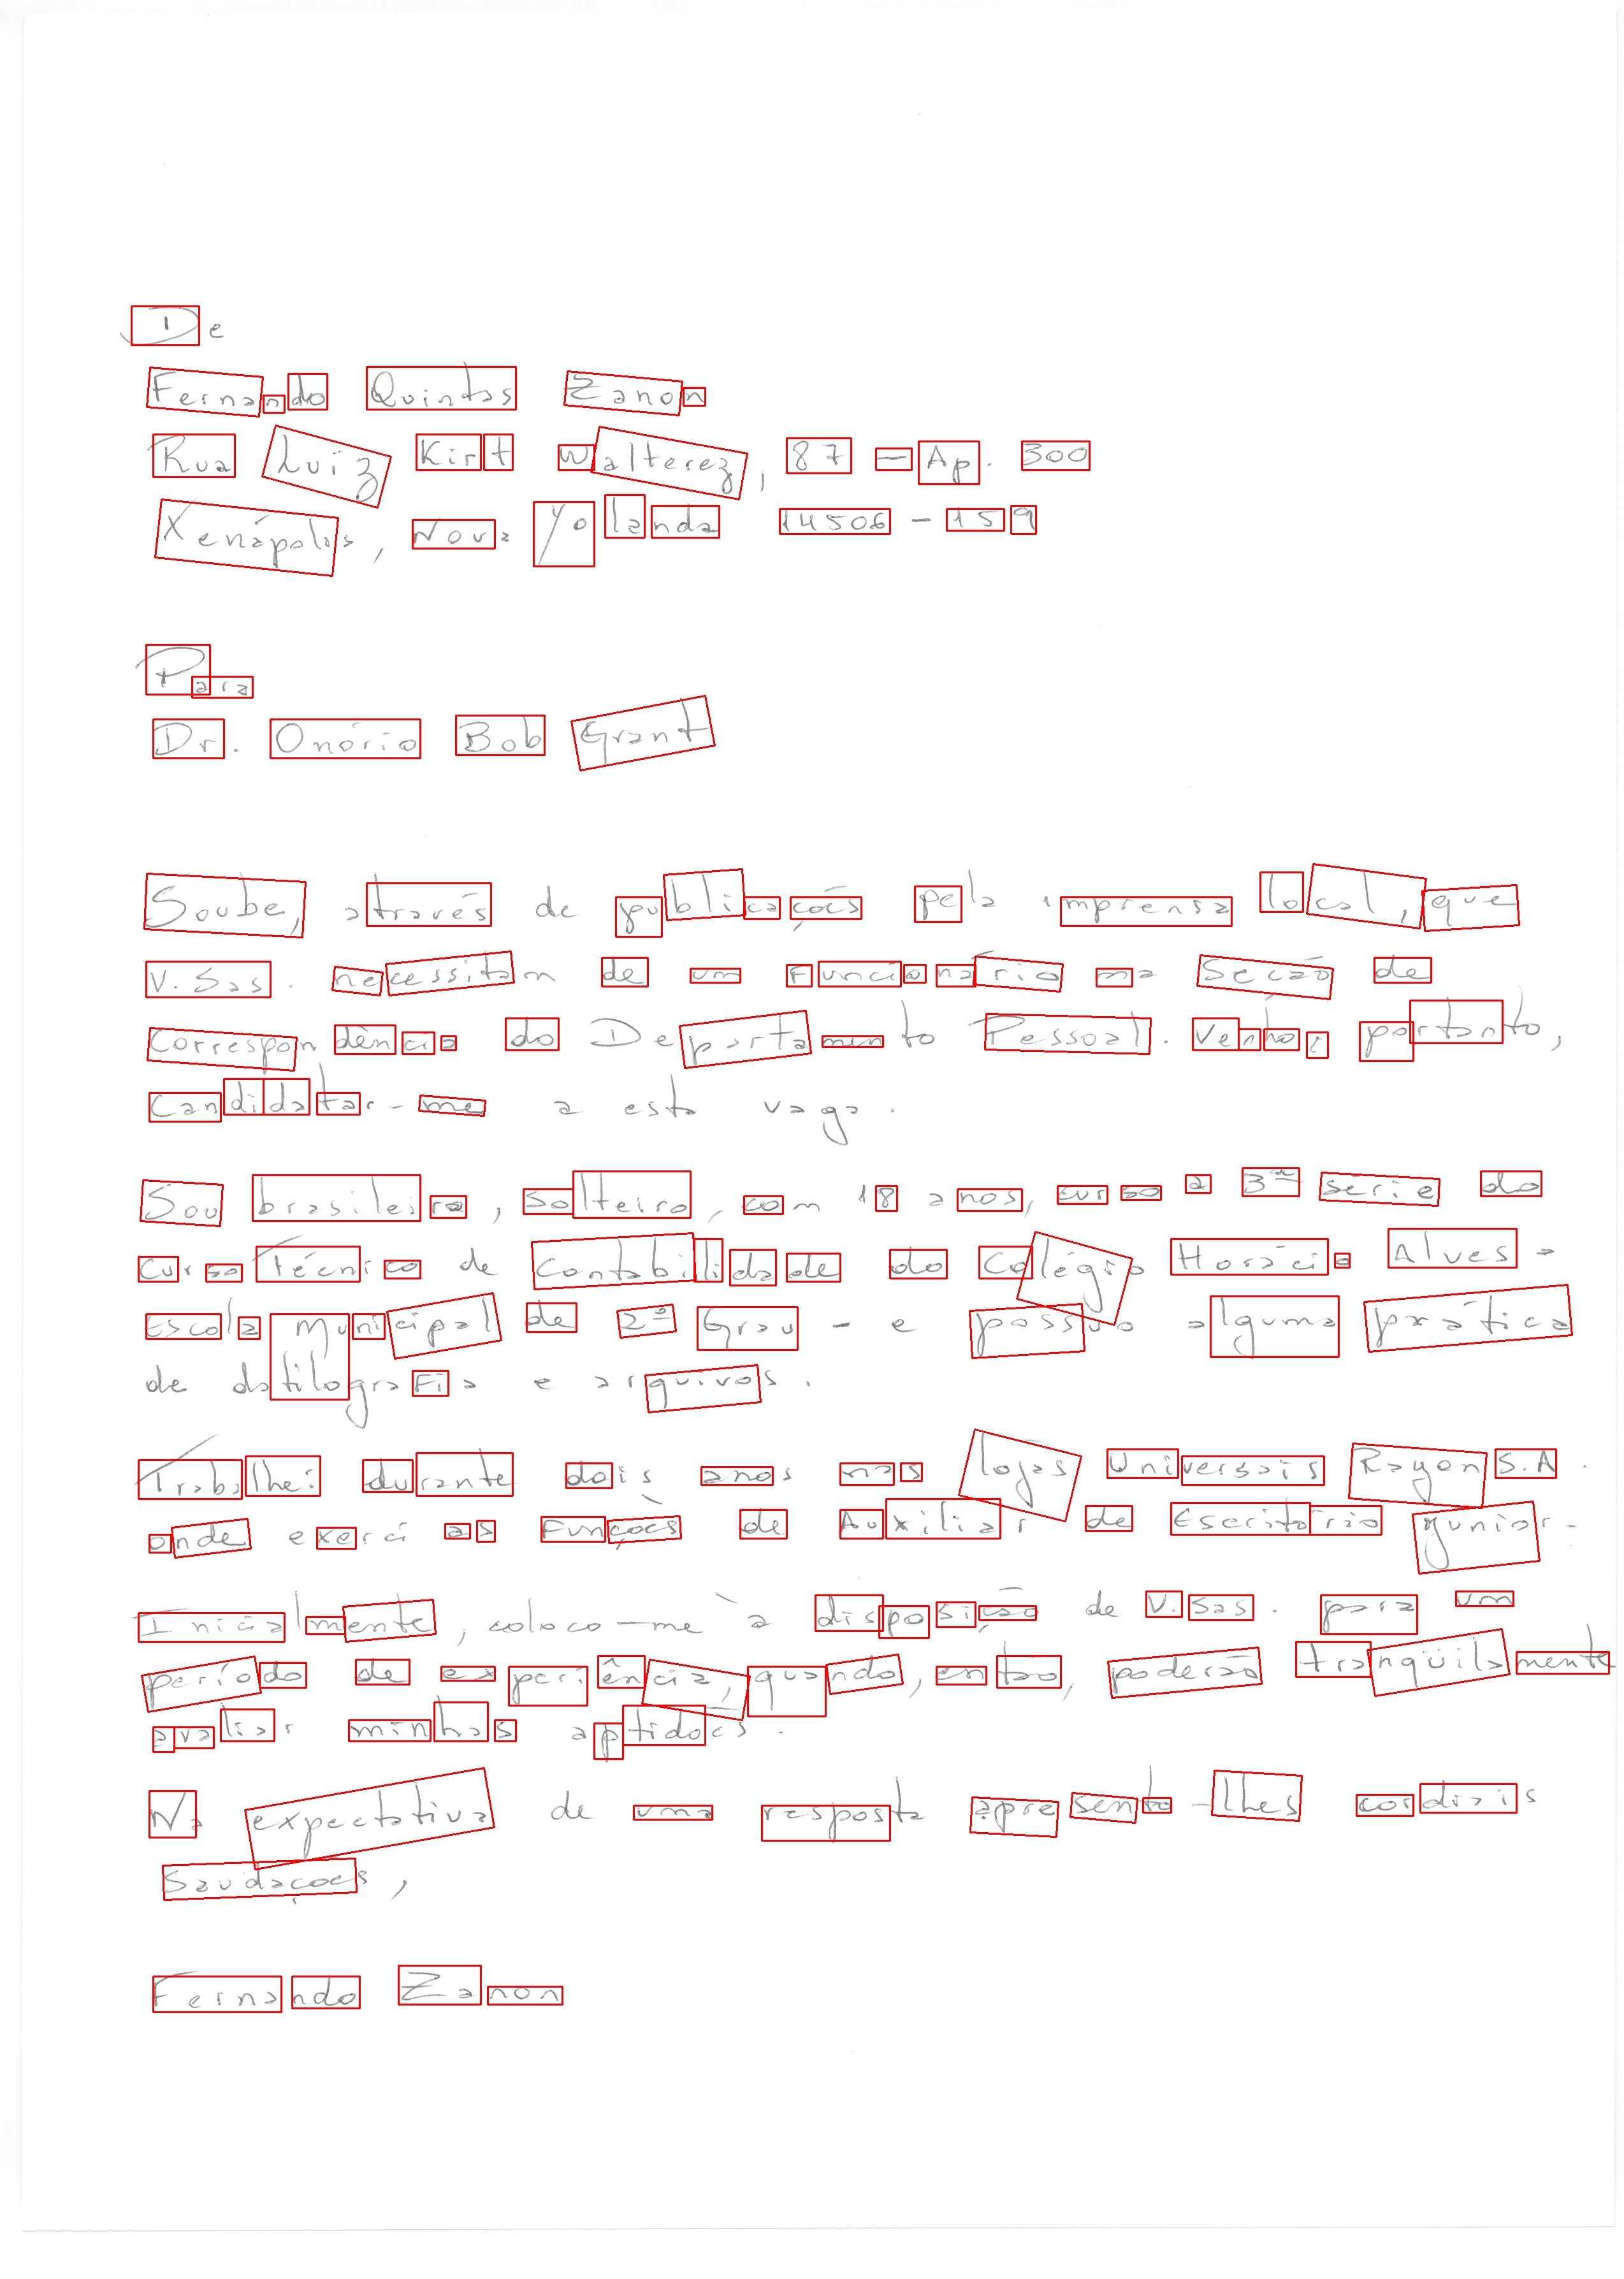 De
Fernando Quintas Zanon
Rua Luiz Kirt Walterez, 87 - Ap. 300
Xenápolis, Nova Yolanda 14506 - 159
Para
Dr. Onório Bob Grant
Soube, através de publicações pela imprensa local, que
V. Sas. necessitam de um funcionário na Seção de
correspondência do Departamento Pessoal. Venho, portanto,
candidatar-me a esta vaga.
Sou brasileiro, solteiro, com 18 anos, curso a 3ª serie do
curso Técnico de Contabilidade do Colégio Horácio Alves -
Escola Municipal de 2º Grau - e possuo alguma prática
de datilografia e arquivos.
Trabalhei durante dois anos nas lojas Universais Rayon S.A.
onde exerci as funções de Auxiliar de Escritório Junior.
Inicialmente, coloco-me à disposição de V. Sas. para um
período de experiência, quando, entao, poderão tranqüilamente
avaliar minhas aptidões.
Na expectativa de uma resposta apresento-lhes cordiais
Saudações,
Fernando Zanon